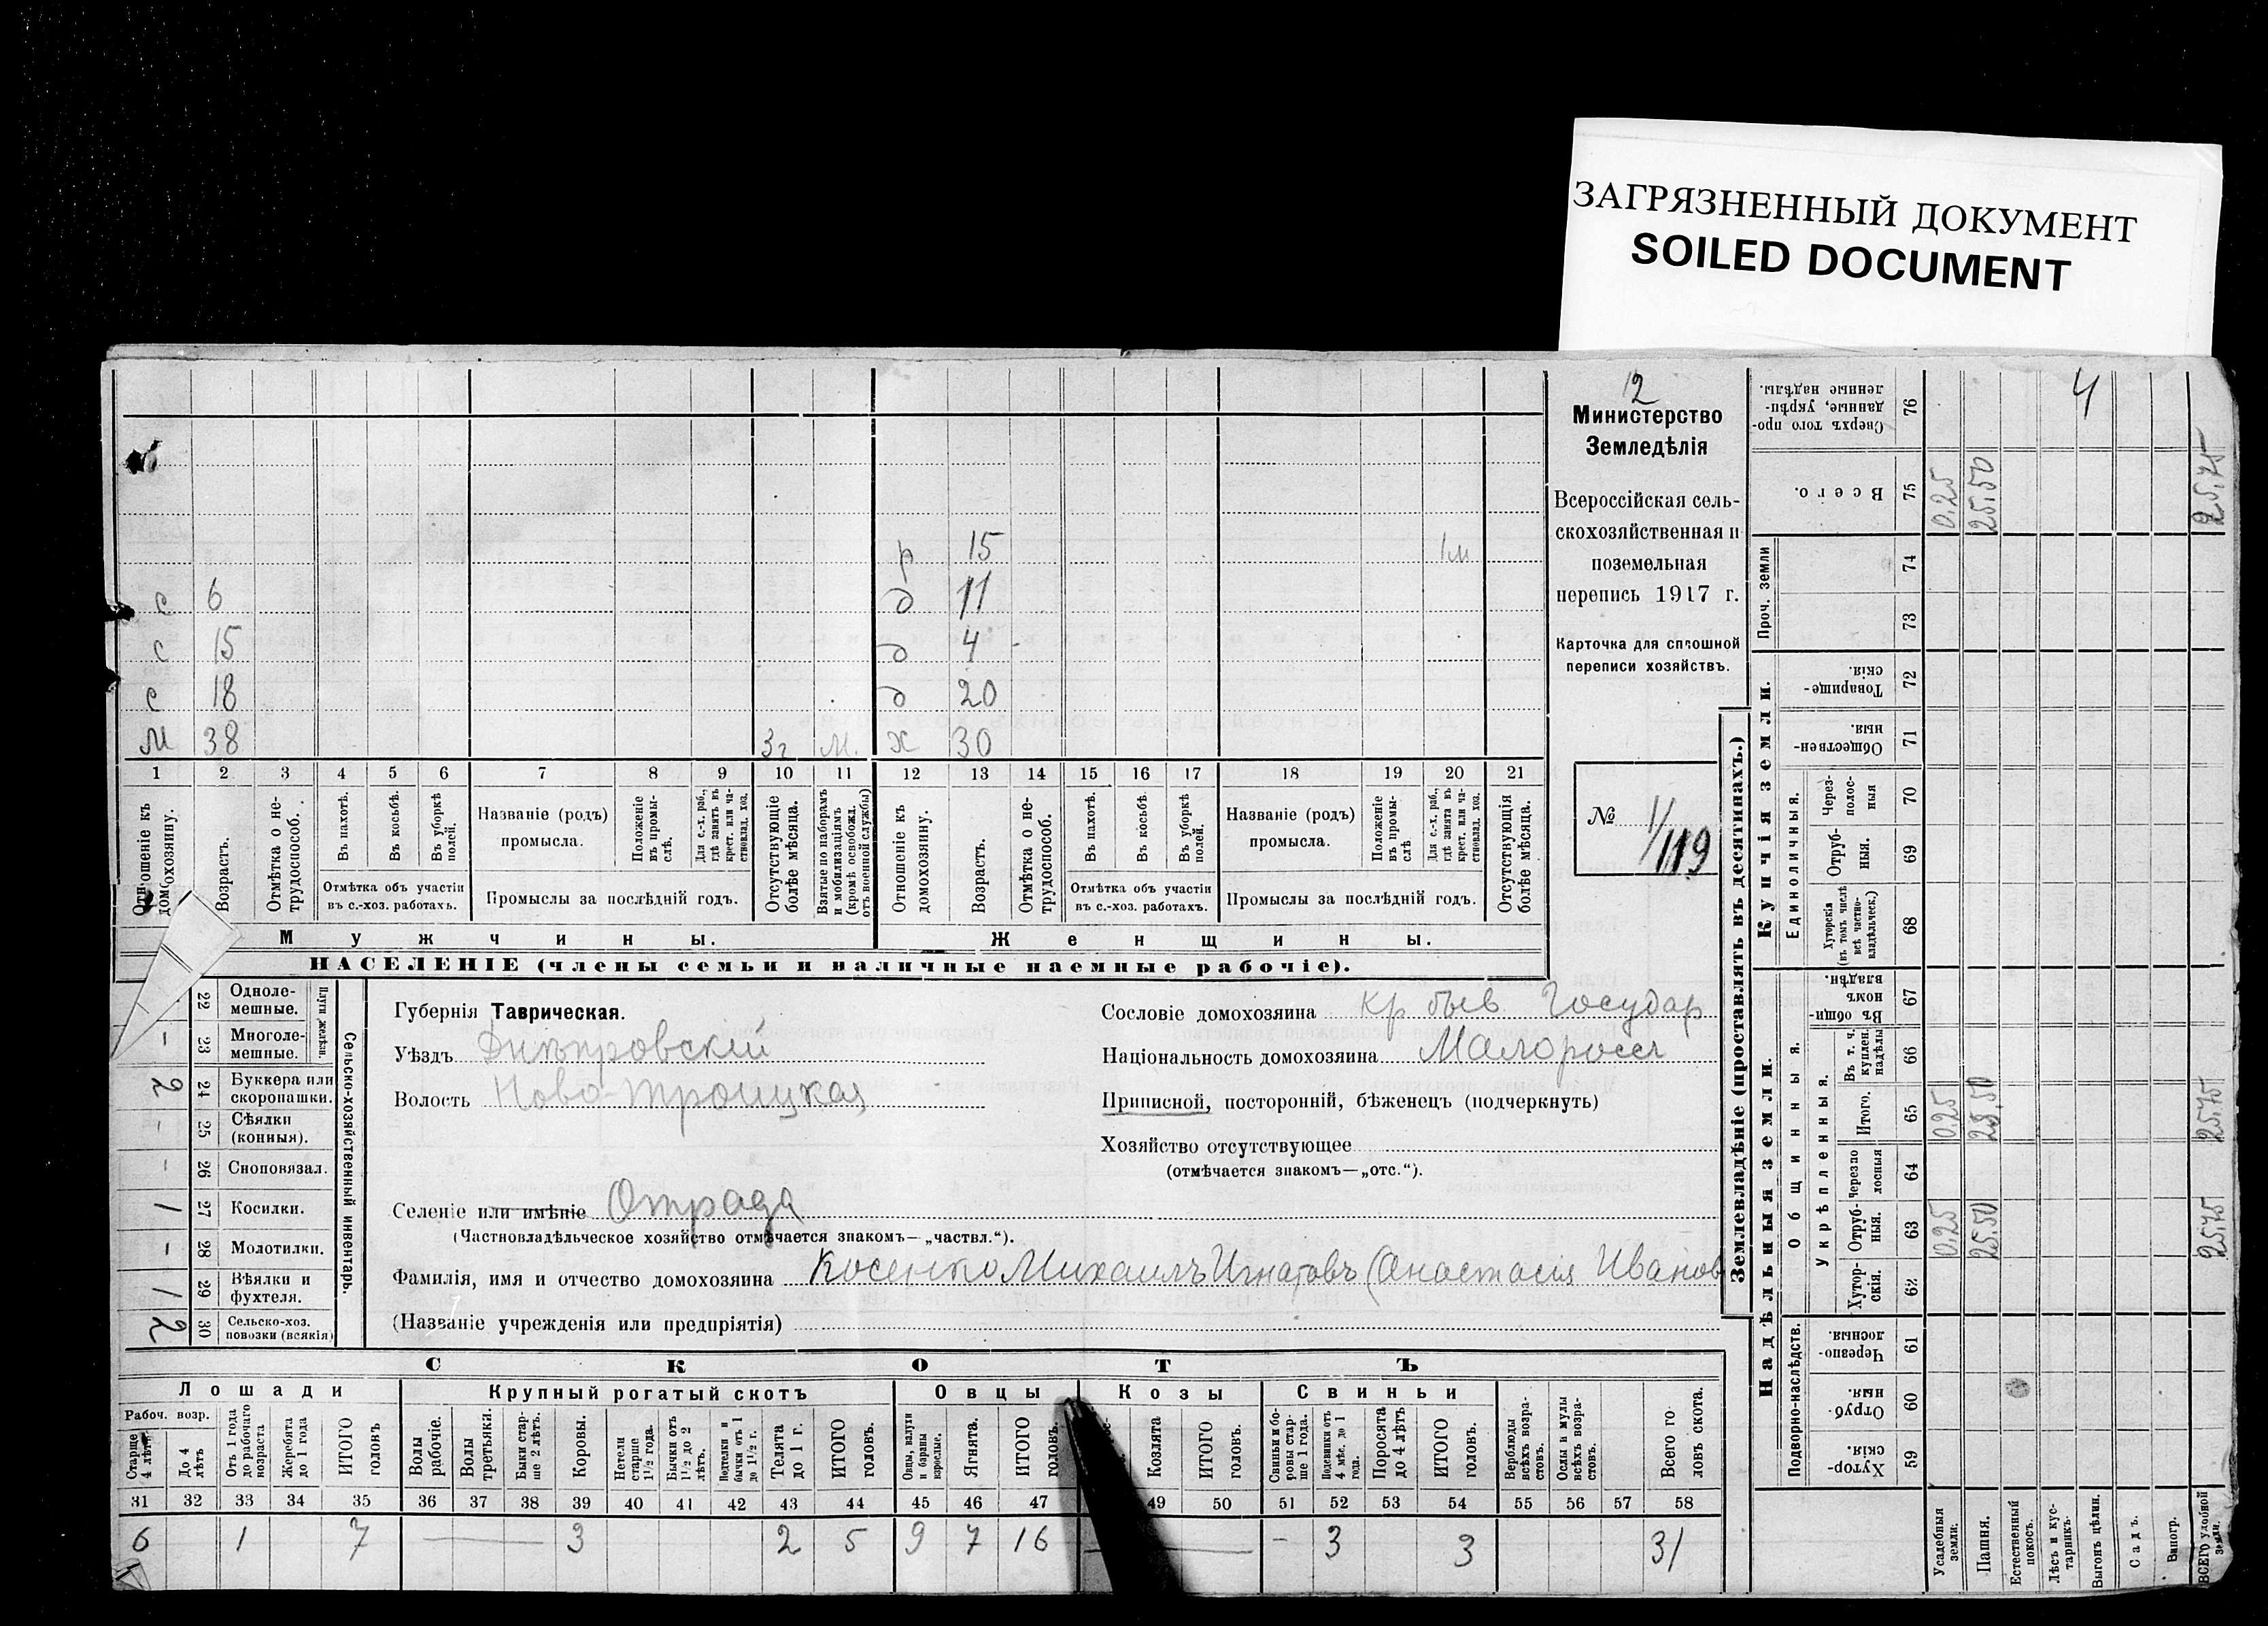 ЗАГРЯЗНЕННЫЙ ДОКУМЕНТ
SOILED DOCUMENT
12
Министерство
Земледѣлія
Всероссійская сель-
скохозяйственная и
поземельная
перепись 1917 г.
Карточка для сплошной
переписи хозяйствъ.
№ 1/119
р 15 1м
с 6 д 11
с 15 д 4
с 18 д 20
м 38 3г м. ж 30
1 2 3 4 5 6 7 8 9 10 11 12 13 14 15 16 17 18 19 20 21
Отношеніе къ домохозяину.
Возрастъ.
Отмѣтка о нетрудоспособ.
Въ пахотѣ.
Въ косьбѣ.
Въ уборкѣ полей.
Отмѣтка объ участіи
въ с.-хоз. работахъ.
Названіе (родъ)
промысла.
Положеніе въ промыслѣ.
Для с.-х. раб., гдѣ занятъ въ крест. или частновлад. хоз.
Промыслы за послѣдній годъ.
Отсутствующіе болѣе мѣсяца.
Взятые по наборамъ и мобилизаціямъ (кромѣ освобожд. отъ военной службы)
Отношеніе къ домохозяину.
Возрастъ.
Отмѣтка о нетрудоспособ.
Въ пахотѣ.
Въ косьбѣ.
Въ уборкѣ полей.
Отмѣтка объ участіи
въ с.-хоз. работахъ.
Названіе (родъ)
промысла.
Положеніе въ промыслѣ
Для с.-х. раб., гдѣ занята въ крест. или частновлад. хоз.
Промыслы за послѣдній годъ.
Отсутствующія болѣе мѣсяца.
Мужчины. Женщины.
НАСЕЛЕНІЕ (члены семьи и наличные наемные рабочіе).
Сельско-хозяйственный инвентарь.
Плуги желѣзн.
22 Однолемешные.
– 23 Многолемешные.
2 24 Буккера или скоропашки.
– 25 Сѣялки (конныя).
– 26 Сноповязал.
1 27 Косилки.
– 28 Молотилки.
1 29 Вѣялки и фухтеля.
2 30 Сельско-хоз. повозки (всякія)
Губернія Таврическая.
Уѣздъ Днѣпровскій
Волость Ново-Троицкая
Селеніе или имѣніе Отрада
(Частновладѣльческое хозяйство отмѣчается знакомъ—„частвл.“).
Фамилія, имя и отчество домохозяина Косенко Михаилъ Игнатовъ (Анастасія Иванов
(Названіе учрежденія или предпріятія)
Сословіе домохозяина кр быв Государ
Національность домохозяина Малоросс
Приписной, посторонній, бѣженецъ (подчеркнуть)
Хозяйство отсутствующее
(отмѣчается знакомъ—„отс.“).
СКОТЪ
Лошади Крупный рогатый скотъ Овцы Козы Свиньи
Рабоч. возр.
Старше 4 лѣтъ
До 4 лѣтъ
Отъ 1 года до рабочаго возраста
Жеребята до 1 года
ИТОГО головъ
Волы рабочіе.
Волы третьяки.
Быки старше 2 лѣтъ.
Коровы.
Нетели старше 1 1/2 года.
Бычки отъ 1 1/2 до 2 лѣтъ.
Подтелки и бычки отъ 1 до 1 1/2 г.
Телята до 1 г.
ИТОГО головъ.
Овцы, валухи и бараны взрослые.
Ягнята.
ИТОГО головъ.
Козлята
ИТОГО головъ.
Свиньи и боровы старше 1 года.
Подсвинки отъ 4 мѣс. до 1 года.
Поросята до 4 лѣтъ
ИТОГО головъ.
Верблюды всѣхъ возрастовъ.
Ослы и мулы всѣхъ возрастовъ.
Всего головъ скота.
31 32 33 34 35 36 37 38 39 40 41 42 43 44 45 46 47 49 50 51 52 53 54 55 56 57 58
6 1 7 — 3 2 5 9 7 16 — – 3 3 31
Землевладѣніе (проставлять въ десятинахъ.)
Надѣльныя земли. Купчія земли.
Подворно-наслѣдств.
Общинныя.
Укрѣпленныя.
Единоличныя.
Проч. земли
Сверхъ того проданные, укрѣпленные надѣлы. 76 4
Всего. 75 0,25 25,50 25,75
74
73
Товарищескія. 72
Общественныя. 71
Черезполосныя 70
Отрубныя. 69
Хуторскія (въ томъ числѣ всѣ частновладѣльческ.) 68
Въ общинномъ владѣн. 67
Въ т. ч. куплен. надѣлы 66
Итого. 65 0,25 25,50 25,75
Черезполосныя 64
Отрубныя. 63 0,25 25,50 25,75
Хуторскія. 62
Черезполосныя. 61
Отрубныя. 60
Хуторскія. 59
Усадебныя земли.
Пашня.
Естественный покосъ.
Лѣсъ и кустарникъ.
Выгонъ цѣлин.
Садъ.
Виногр.
ВСЕГО удобной земли.